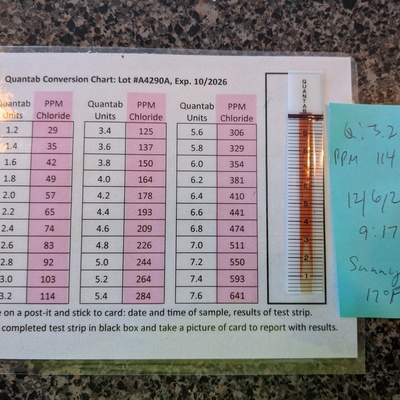 Quantab Conversion Chart: Lot #A4290A, Exp. 10/2026
Quantab Units PPM Chloride Quantab Units PPM Chloride Quantab Units PPM Chloride
1.2 29 3.4 125 5.6 306
1.4 35 3.6 137 5.8 329
1.6 42 3.8 150 6.0 354
1.8 49 4.0 164 6.2 381
2.0 57 4.2 178 6.4 410
2.2 65 4.4 193 6.6 441
2.4 74 4.6 209 6.8 474
2.6 83 4.8 226 7.0 511
2.8 92 5.0 244 7.2 550
3.0 103 5.2 264 7.4 593
3.2 114 5.4 284 7.6 641
e on a post-it and stick to card: date and time of sample, results of test strip.
completed test strip in black box and take a picture of card to report with results.
QUANTAB
6
5
4
3
2
1
Q: 3.2
PPM 114
12/6/2
9:17
Sunny
17°F